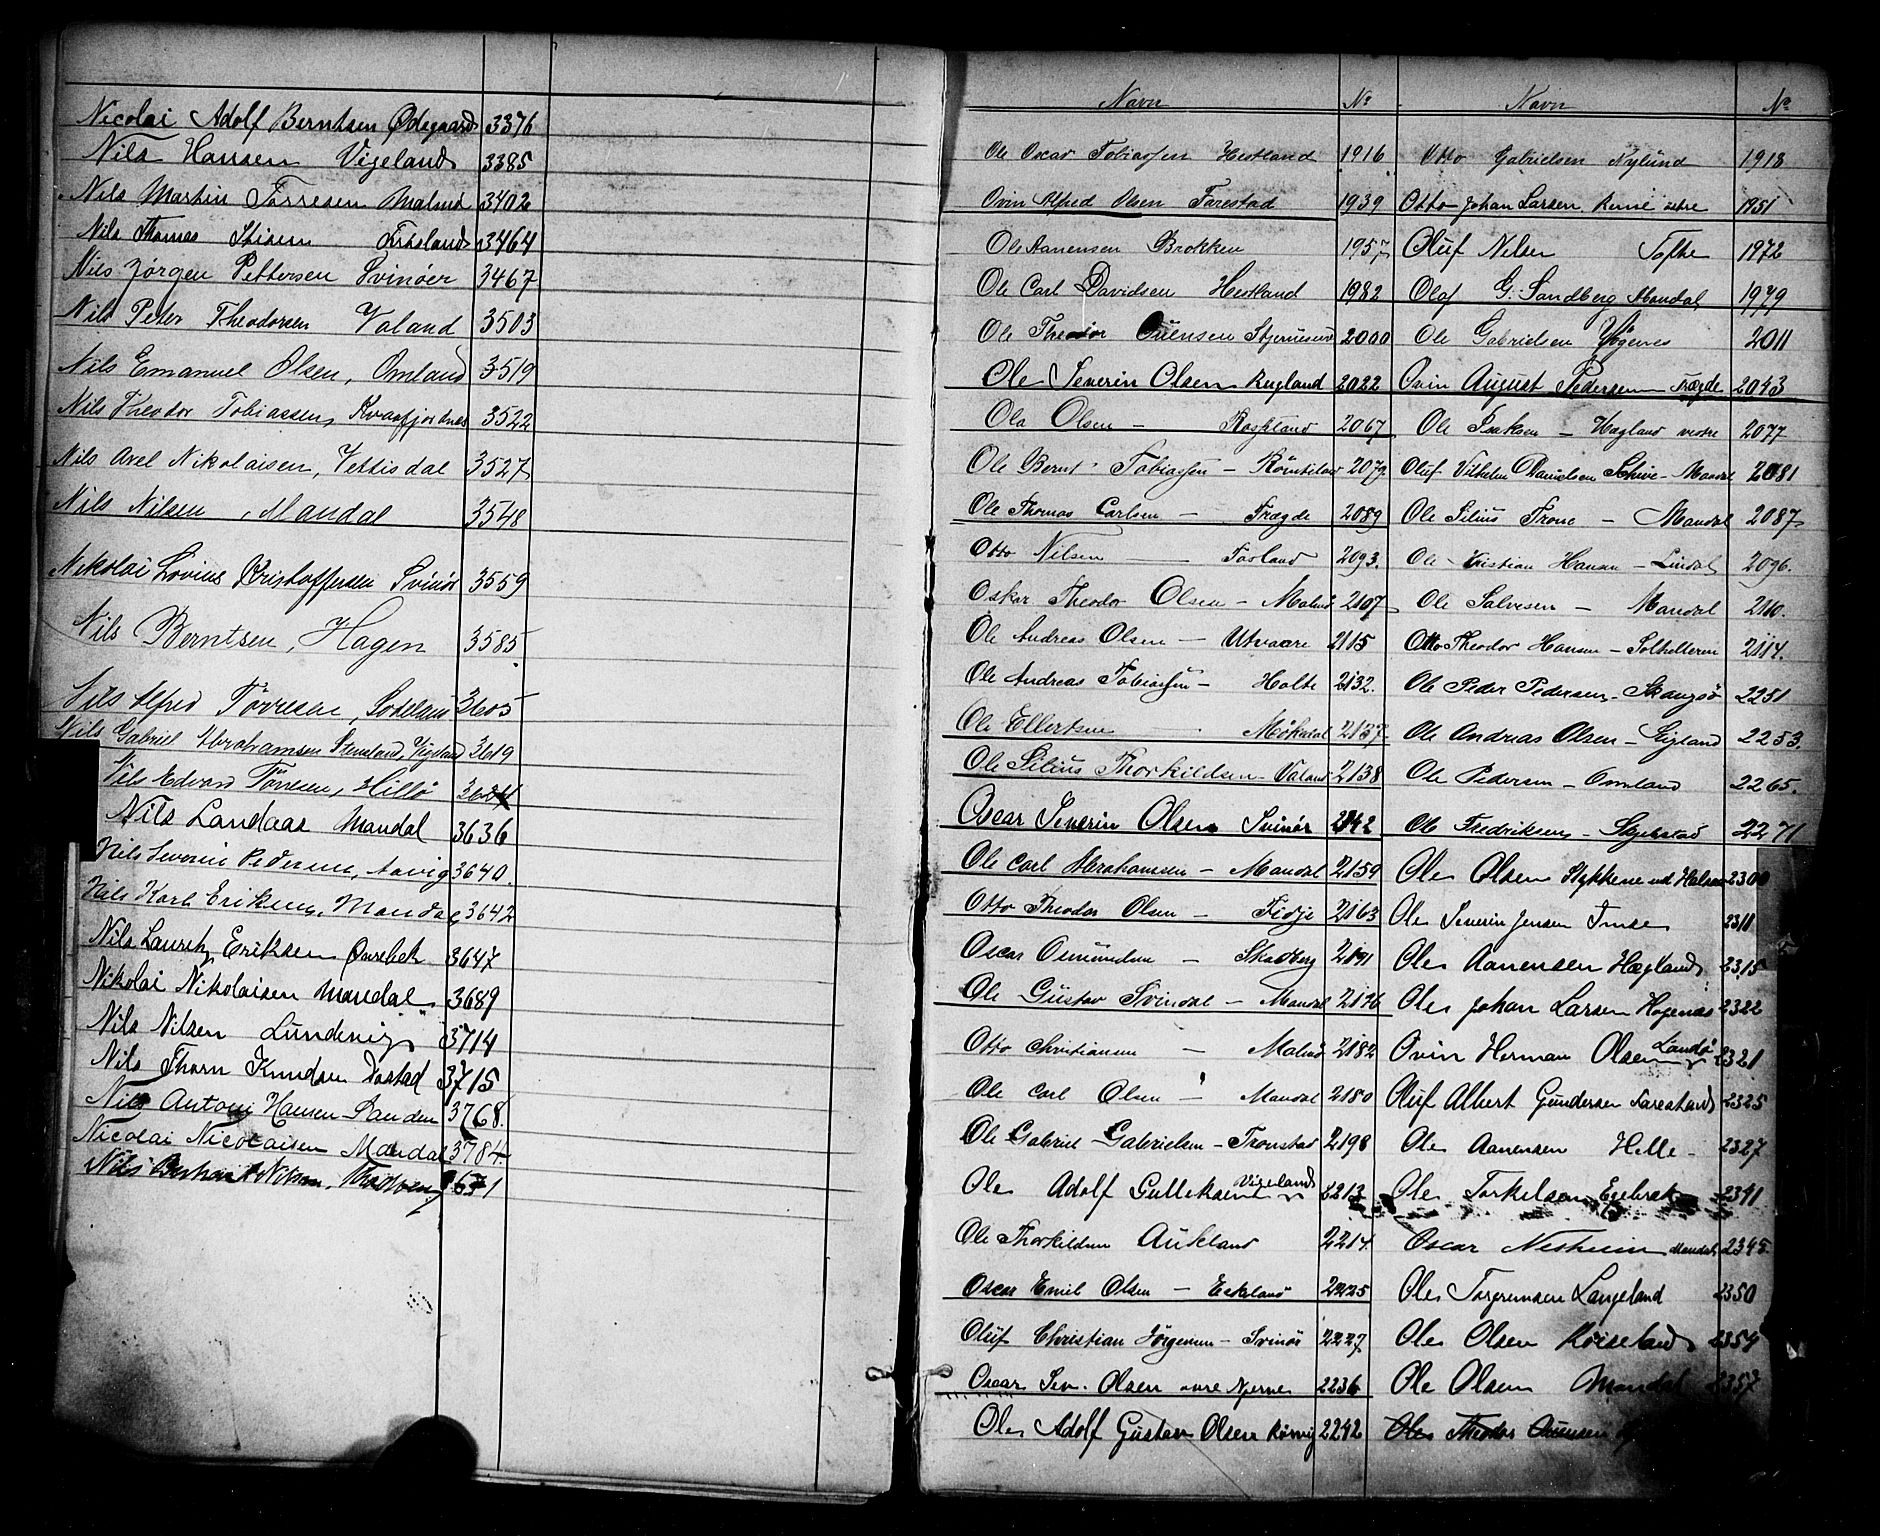 Nicolai Adolf Berntsen Ødegaard 3376
Nils Hansen Vigeland 3385
Nils Martin Tørresen Malmø 3402
Nils Thomas 3464
Nils Jørgen Pettersen Svinøer 3467
Nils Peter Theodorsen Valand 3503
Nils Emanuel Olsen, Omland 3519
Nils Theodor Tobiassen, Kvaafjordnes 3522
Nils Axel Nikolaisen, Vettisdal 3527
Nils Nilsen, Mandal 3548
Nikolai Lovius Kristoffersen Svinør 3559
Nils Berntsen, Hagen 3585
Nils Alfred Tørresen, Sodeland 3605
Nils Gabriel Abrahamsen Stensland, Vigeland 3619
Nils Edvard Tørresen, Hillø
Nils Landaas Mandal 3636
Nils Severin Pedersen, Aavig 3640.
Nils Karl Eriksen, Mandal 3642
Nils Lauretz Eriksen Øvrebek 3647
Nikolai Nikolaisen Mandal 3689
Nils Nilsen Lundevig 3714
Nils Thorn Knudsen Dostad 3715
Nils Anton Hansen Sanden 3768.
Nicolai Nicolaisen Mandal 3784.
Nils
Navn No Navn No
Ole Oscar Tobiassen Hestland 1916 Otto Gabrielsen Nylund 1918
Ovin Alfred Olsen Farestad 1939 Otto Johan Larsen 1951
Ole Aanensen Brokken 1957 Oluf Nelsen Tofte 1972
Ole Carl Davidsen Hestland 1982 Olaf G. Sandberg Mandal 1979
Ole Theodor Ouensen Stjernesund 2000 Ole Gabrielsen Høgenes 2011
Ole Severin Olsen Rugland 2022 Ovin August Pedersen Trægde 2043
Ole Olsen – Roseland 2067 Ole Isaksen – Hægland vestre 2077
Ole Bernt Tobiassen – 2079 Oluf Vilhelm Danielsen Schive – Mandal 2081
Ole Thomas Carlsen – Trægde 2089 Ole Silius Trone – Mandal 2087
Otto Nilsen – Fasland 2093. Ole Kristian Hansen – Lindal 2096.
Oskar Theodor Olsen – Malmø 2107 Ole Salvesen – Mandal 2110.
Ole Andreas Olsen – Utvaare 2115 Otto Theodor Hansen – 2114.
Ole Andreas Tobiassen – Holte 2132. Ole Peder Pedersen – Skougsø 2251
Ole Ellertsen – 2137 Ole Andreas Olsen – Eigland 2253.
Ole Silius Thorkildsen – Valand 2138 Ole Pedersen – Omland 2265.
Oscar Severin Olsen Svinør 2142 Ole Fredriksen – 2271
Ole Carl Abrahamsen – Mandal 2159 Ole Olsen Stykkene ved 2300
Otto Theodor Olsen – Fidje 2163 Ole Severin Jensen Imse 2311
Oscar Osmundsen – Skadberg 2191 Ole Aanensen Hægland 2315
Ole Gustav Svindal – Mandal 2176 Ole Johan Larsen Høgenæs 2322
Otto Christiansen – Malmø 2182 Ovin Herman Olsen Landø 2321
Ole Carl Olsen – Mandal 2180 Oluf Albert Gundersen Farestad 2325
Ole Gabriel Gabrielsen – Tronstad 2198 Ole Aanensen Hille – 2327
Ole Adolf Gulleksen Vigeland 2213 Ole Torkelsen Egebrek 2341
Ole Thorkildsen Aukland 2214. Oscar Nesheim Mandal, 2345.
Oscar Emil Olsen – Eskeland 2225 Ole Torgremsen Langeland 2350
Oluf Christian Jørgensen – Svinør 2227 Ole Olsen Roiseland 2354
Oscar Sev. Olsen øvre Njerve 2236 Ole Olsen Mandal 2357
Ole Adolf Gustav Olsen Rørvig 2242 Ole Theodor Ouensen